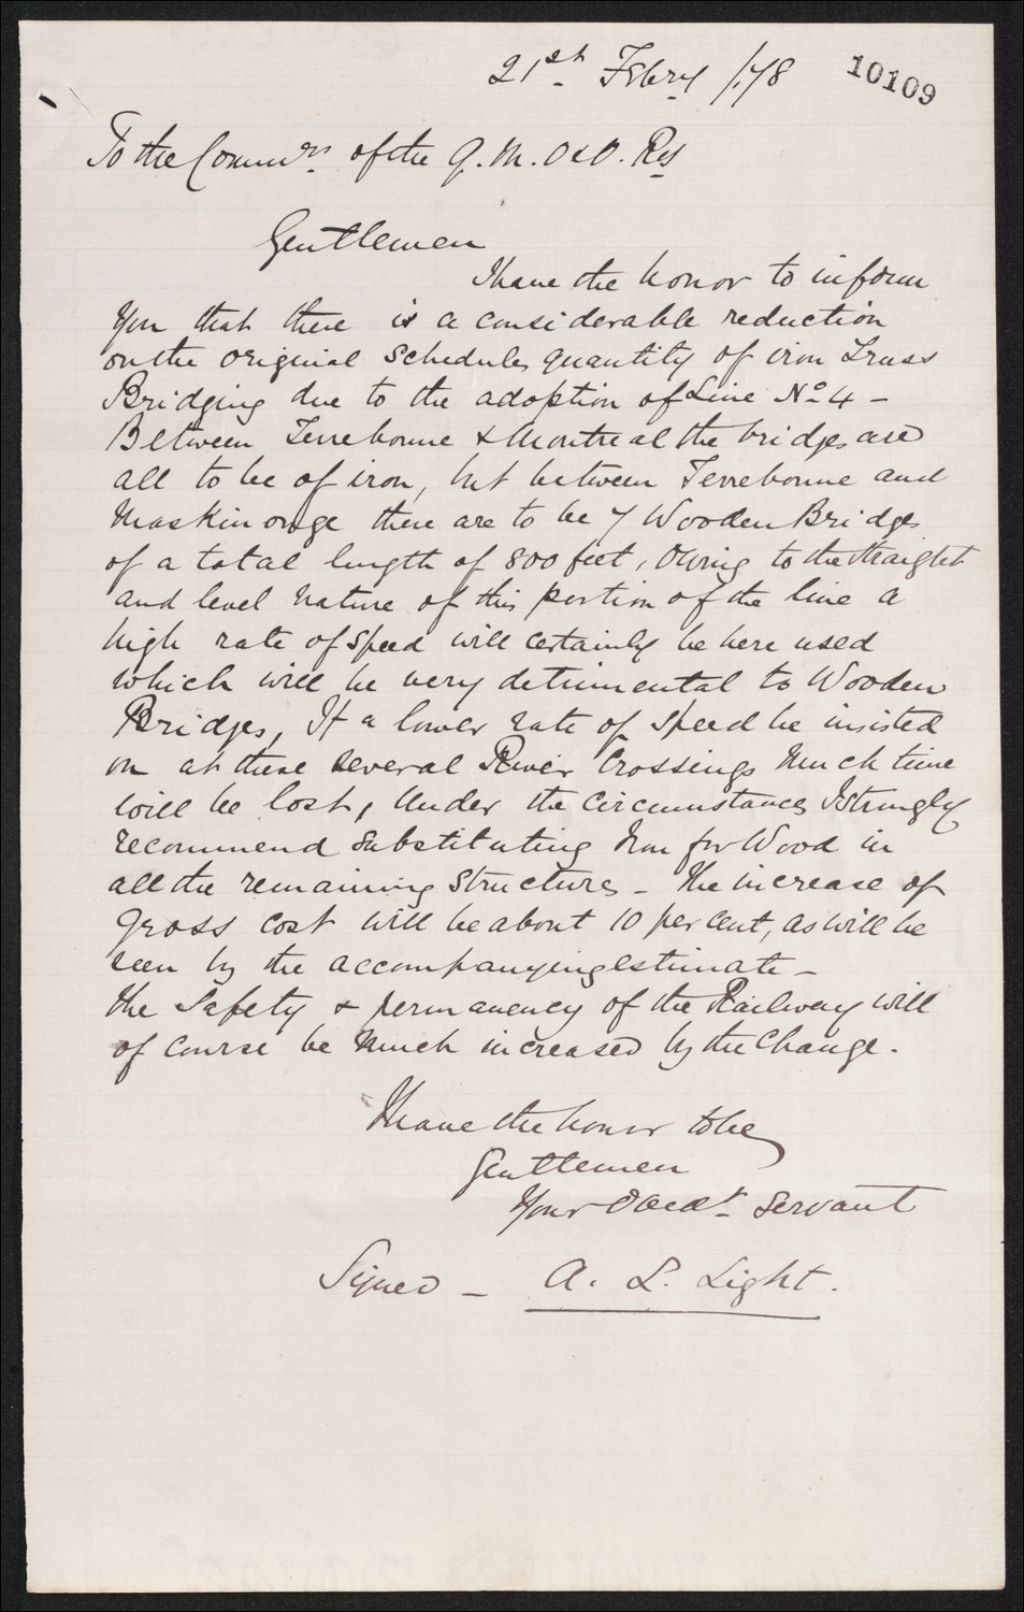 21st Febry /78 10109
To the Commrs. of the Q. M. O & O. Ry
Gentlemen
I have the honor to inform
You that there is a considerable reduction
on the original Schedule quantity of iron Truss
Bridging due to the adoption of Line No 4 –
Between Terrebonne & Montreal the bridges are
all to be of iron, but between Terrebonne and
Maskinonge there are to be 7 Wooden Bridges
of a total length of 800 feet, Owing to the straight
and level nature of this portion of the line a
high rate of speed will certainly be here used
which will be very detrimental to Wooden
Bridges, If a lower rate of speed be insisted
on at these several River Crossings Much time
will be lost, Under the Circumstances I strongly
recommend substituting Iron for Wood in
all the remaining structures – The increase of
gross cost will be about 10 per cent, as will be
seen by the accompanying estimate –
the Safety & permanency of the Railway will
of course be Much increased by the Change.
I have the honor to be
Gentlemen
Your Obedt. Servant
Signed – A. L. Light.